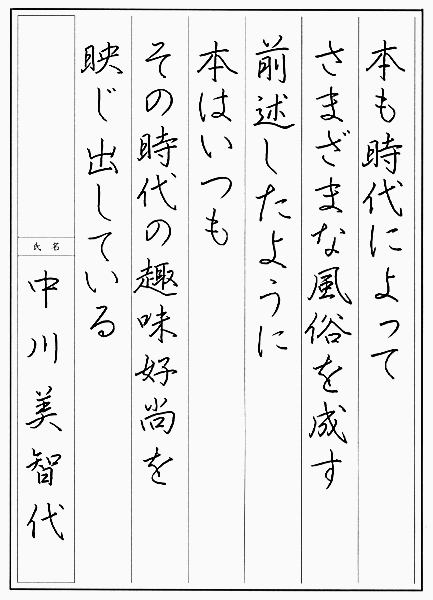 本も時代によって
さまざまな風俗を成す
前述したように
本はいつも
その時代の趣味好尚を
映じ出している
氏名
中川美智代